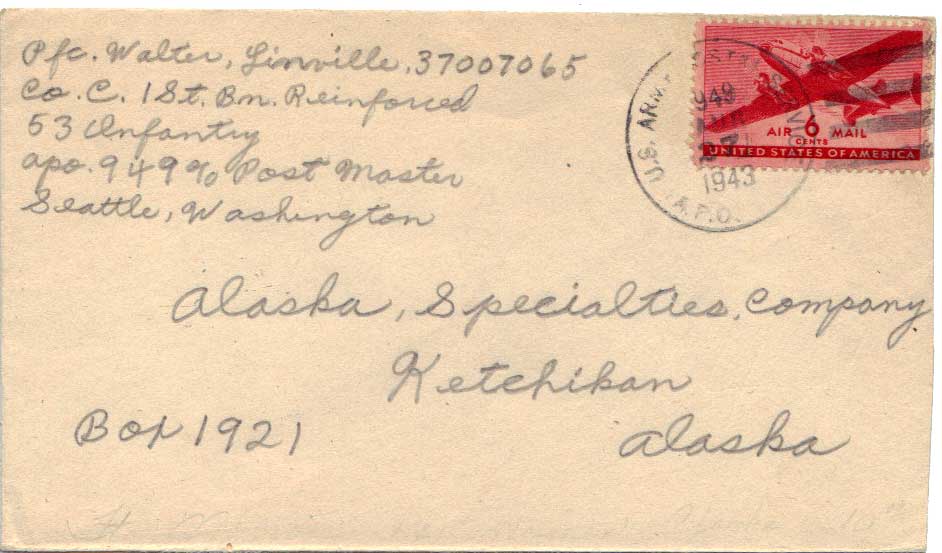 Pfc. Walter, Linville, 37007065
Co. C. 1 St. Bn. Reinforced
53 Infantry
apo. 949 % Post Master
Seattle, Washington
U.S. ARMY
949
1943
A.P.O.
AIR 6 MAIL
CENTS
UNITED STATES OF AMERICA
Alaska, Specialties, Company
Ketchikan
Box 1921
Alaska